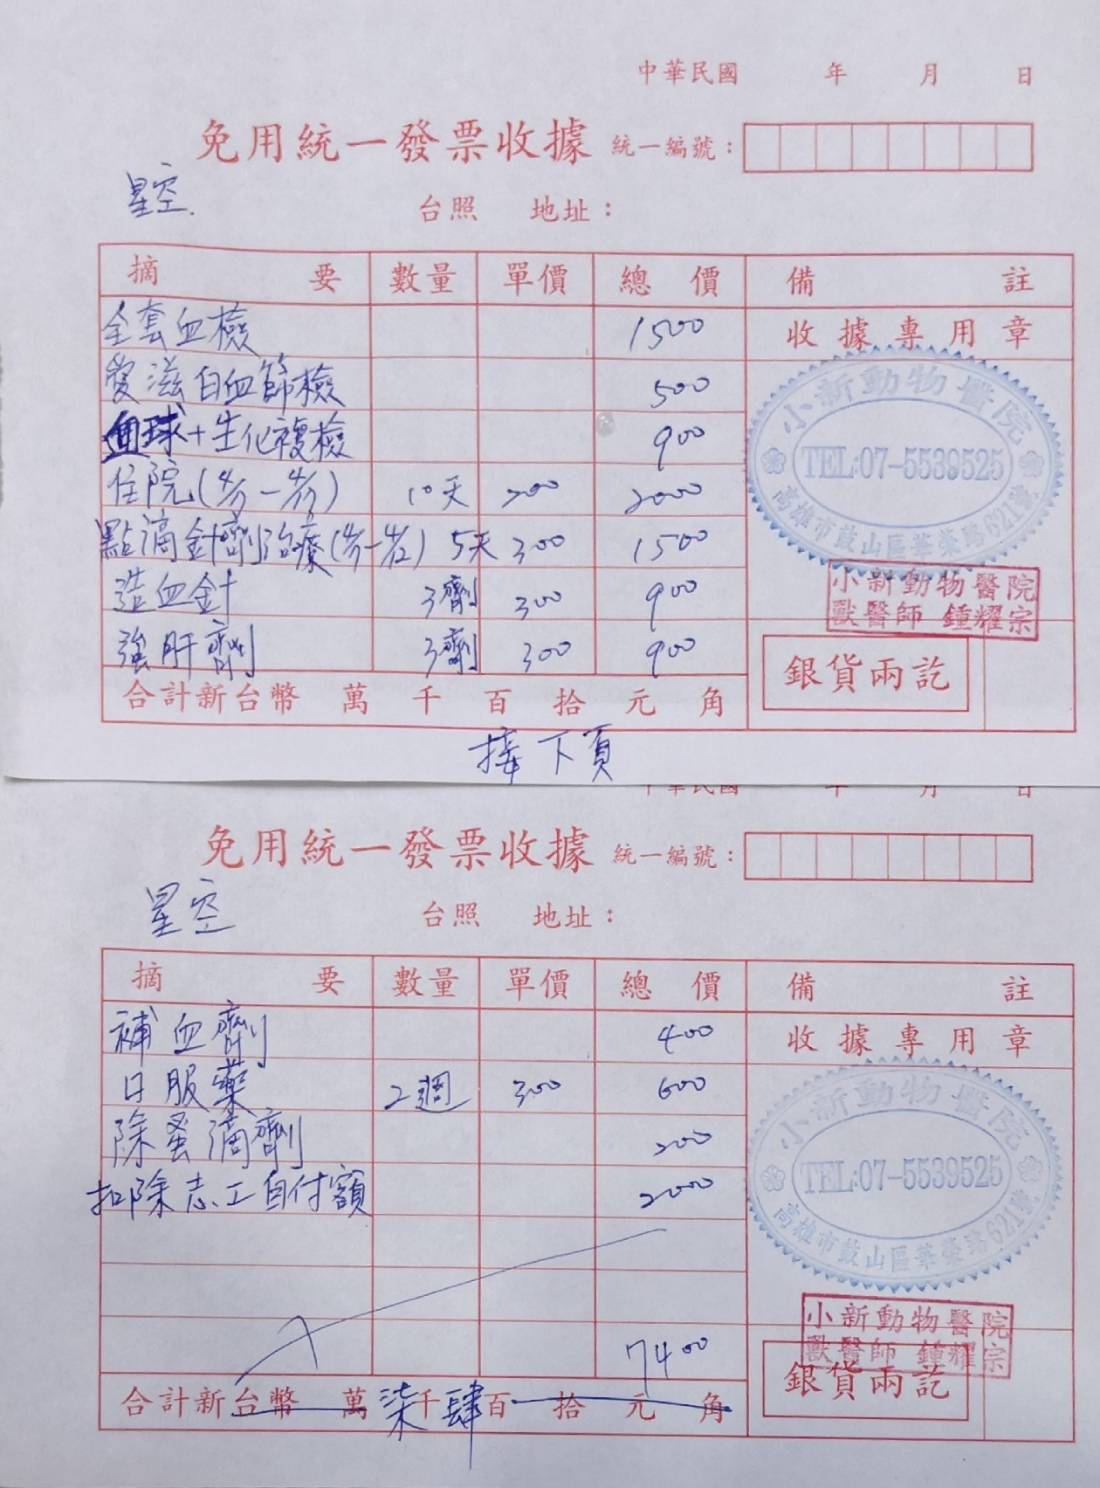 中華民國 年 月 日
免用統一發票收據 統一編號：
星空
台照 地址：
摘要 數量 單價 總價 備註
全套血檢 1500 收據專用章
愛滋白血篩檢 500
血球+生化複檢 900
住院( - ) 10天 200 2000
點滴針劑治療( - ) 5天 300 1500
造血針 3劑 300 900
強肝劑 3劑 300 900
小新動物醫院
TEL:07-5539525
高雄市鼓山區華榮路621號
小新動物醫院
獸醫師 鍾耀宗
銀貨兩訖
合計新台幣 萬 千 百 拾 元 角
接下頁
中華民國 年 月 日
免用統一發票收據 統一編號：
星空
台照 地址：
摘要 數量 單價 總價 備註
補血劑 400 收據專用章
日服藥 2週 300 600
除蚤滴劑 200
扣除志工自付額 2000
7400
小新動物醫院
TEL:07-5539525
高雄市鼓山區華榮路621號
小新動物醫院
獸醫師 鍾耀宗
銀貨兩訖
合計新台幣 萬柒千肆百 拾 元 角